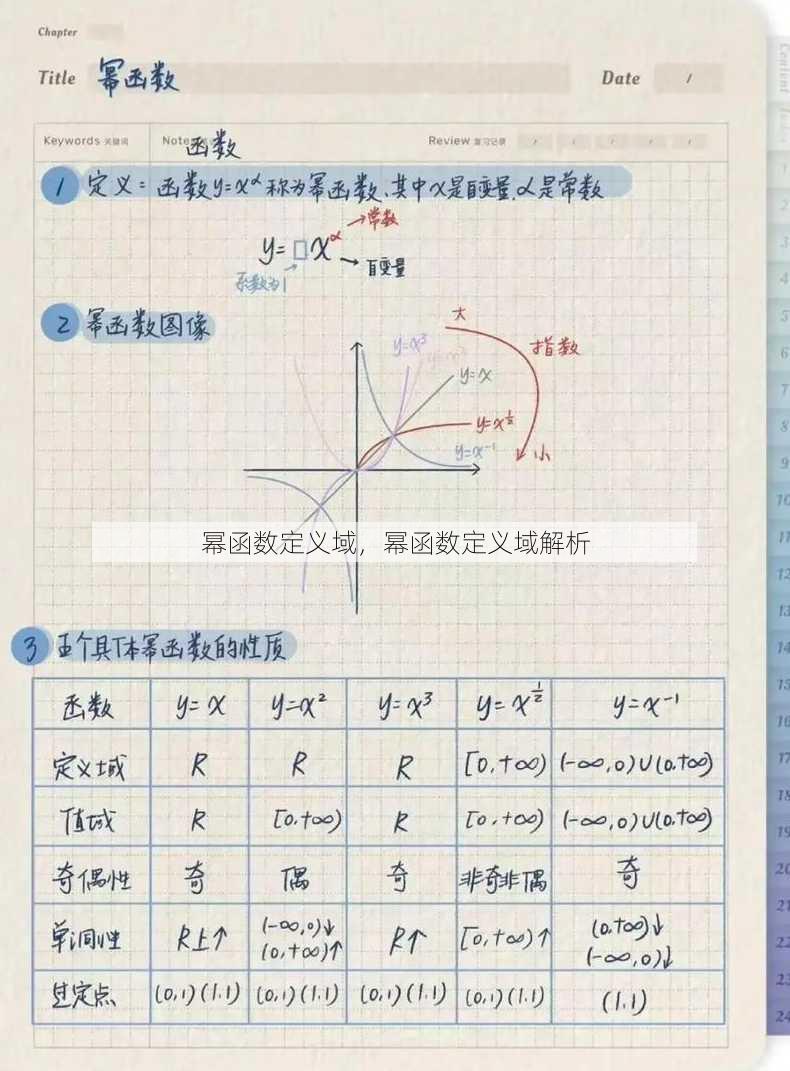 Chapter
Title 幂函数 Date /
Keywords 关键词 Note 函数 Review 复习记录 / / / / /
1 定义：函数y=x^α称为幂函数，其中x是自变量，α是常数
y=□x^α →常数
系数为1 →自变量
2 幂函数图像
大
y=x³ y=x² 指数
y=x
y=x^½
y=x⁻¹ 小
幂函数定义域，幂函数定义域解析
3 五个具体幂函数的性质
函数 y=x y=x² y=x³ y=x^½ y=x⁻¹
定义域 R R R [0,+∞) (-∞,0)∪(0,+∞)
值域 R [0,+∞) R [0,+∞) (-∞,0)∪(0,+∞)
奇偶性 奇 偶 奇 非奇非偶 奇
单调性 R上↑ (-∞,0)↓ R↑ [0,+∞)↑ (0,+∞)↓
(0,+∞)↑ (-∞,0)↓
过定点 (0,1)(1,1) (0,1)(1,1) (0,1)(1,1) (0,1)(1,1) (1,1)
Content
Index
1
2
3
4
5
6
7
8
9
10
11
12
13
14
15
16
17
18
19
20
21
22
23
24